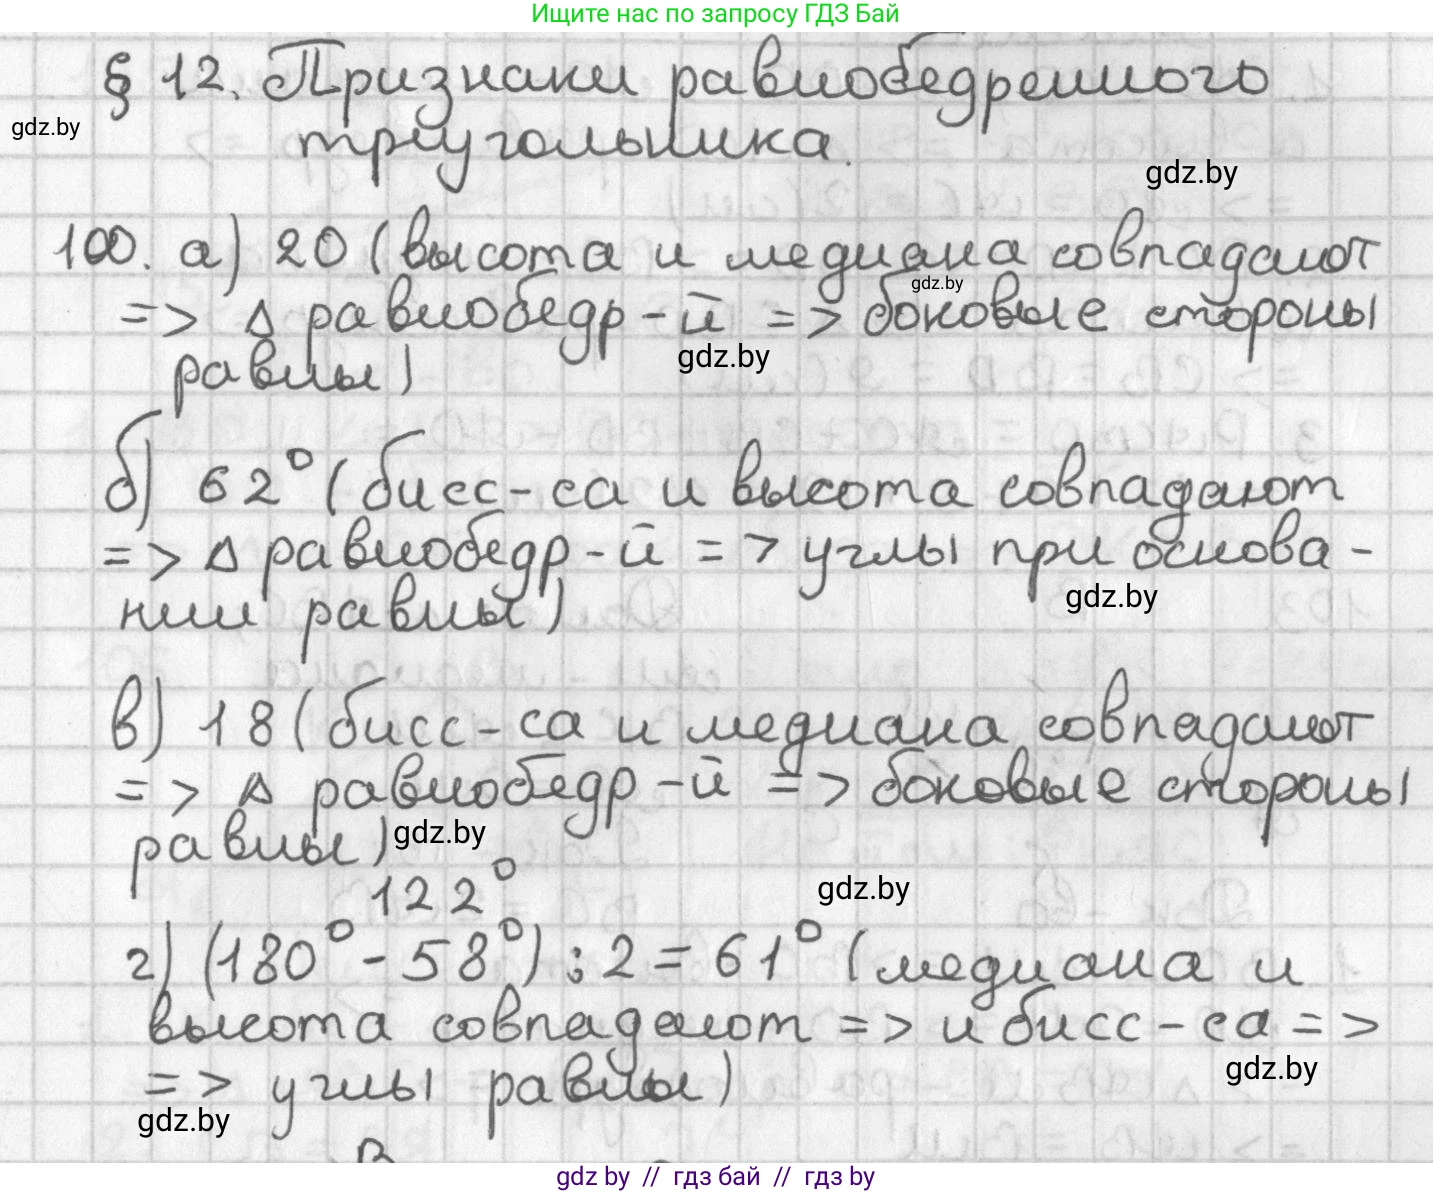 Ищите нас по запросу ГДЗ Бай
§ 12. Признаки равнобедренного
gdz.by
треугольника.
gdz.by
100. а) 20 (высота и медиана совпадают
gdz.by
=> Δ равнобедр-й => боковые стороны
gdz.by
равны)
б) 62° (бисс-са и высота совпадают
=> Δ равнобедр-й => углы при основа-
gdz.by
нии равны)
в) 18 (бисс-са и медиана совпадают
=> Δ равнобедр-й => боковые стороны
равны) gdz.by
122°
gdz.by
г) (180° - 58°) : 2 = 61° (медиана и
высота совпадают => и бисс-са =>
gdz.by
=> углы равны)
gdz.by
gdz by // гдз бай // гдз by